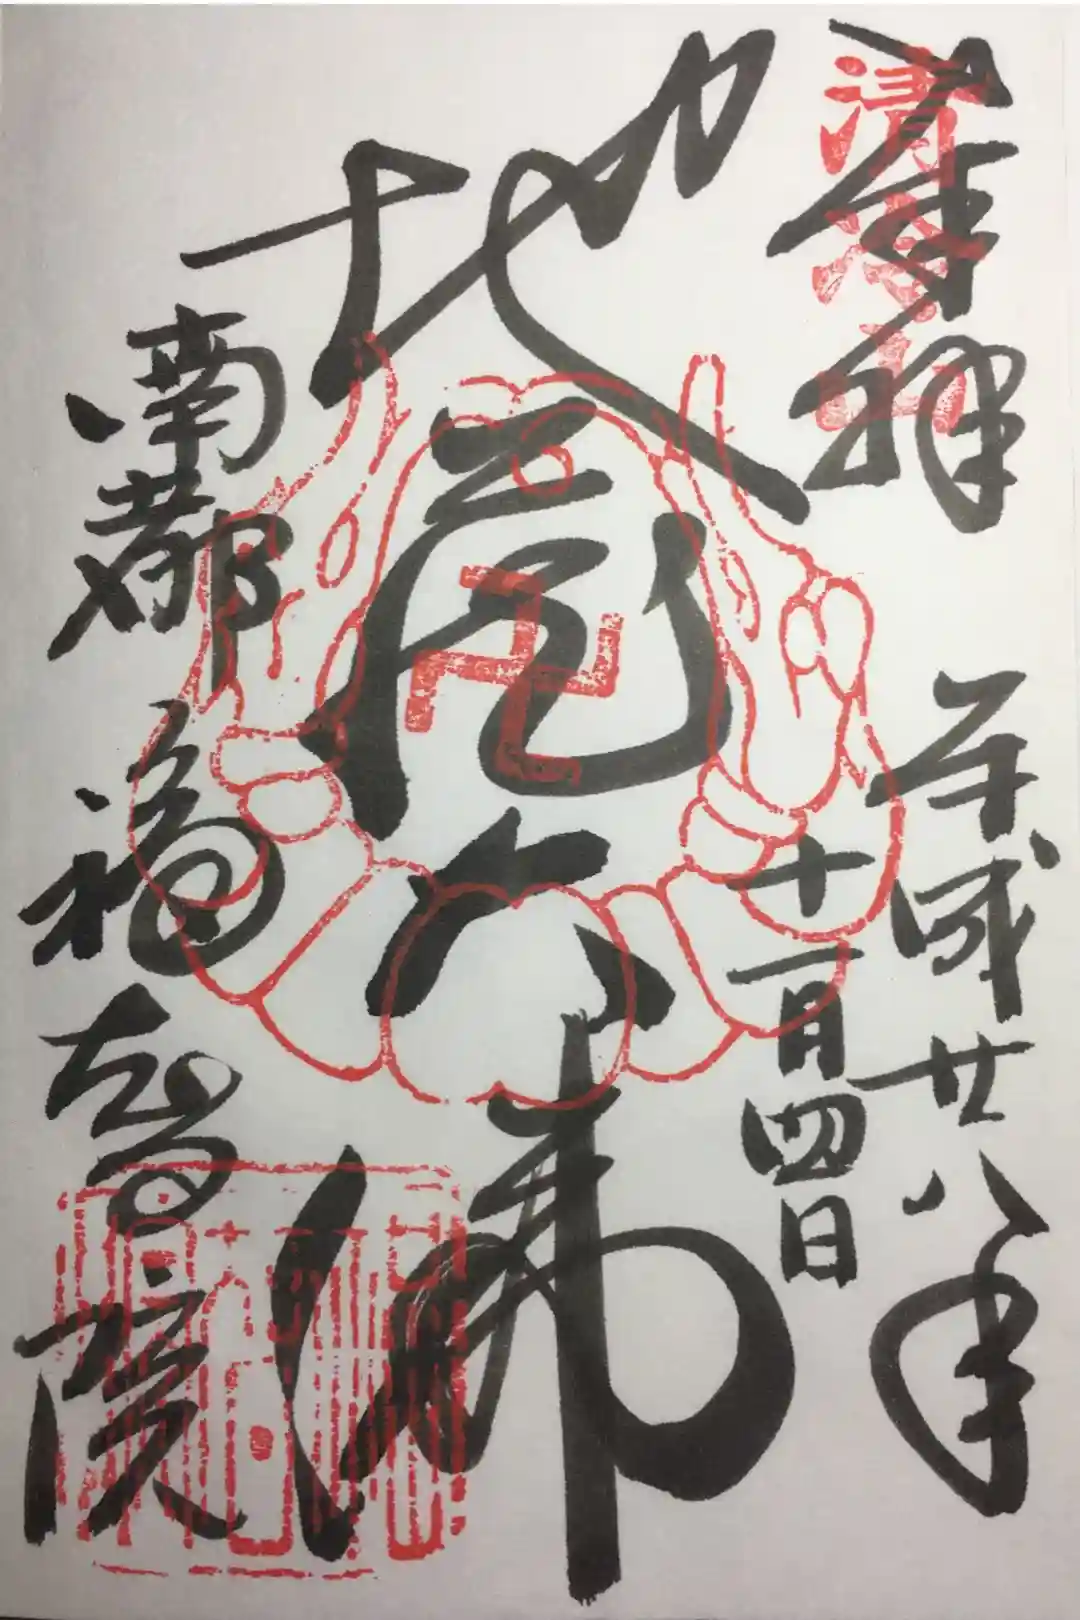 奉拝
平成廿八年
十一月四日
地蔵大佛
南都
福智院